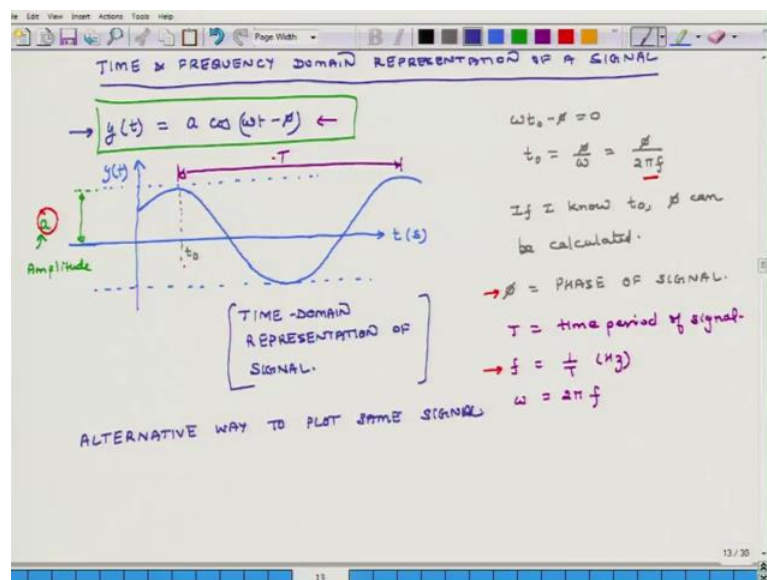 File Edit View Insert Actions Tools Help
Page Width
B I
TIME & FREQUENCY DOMAIN REPRESENTATION OF A SIGNAL
y(t) = a cos (ωt-ø)
y(t)
T
a
Amplitude
t₀
t (s)
[TIME-DOMAIN
REPRESENTATION OF
SIGNAL.]
ALTERNATIVE WAY TO PLOT SAME SIGNAL
ωt₀-ø = 0
t₀ = ø/ω = ø/2πf
If I know t₀, ø can
be calculated.
→ ø = PHASE OF SIGNAL.
T = time period of signal.
→ f = 1/T (Hz)
ω = 2πf
13 / 30
13